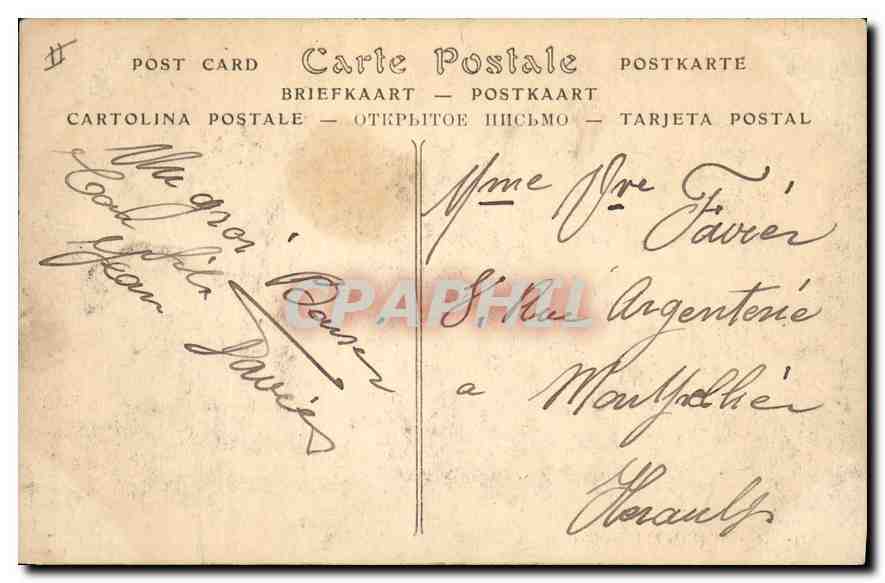 II
POST CARD Carte Postale POSTKARTE
BRIEFKAART — POSTKAART
CARTOLINA POSTALE — ОТКРЫТОЕ ПИСЬМО — TARJETA POSTAL
Un gros Baiser
fils
Jean Favier
Mme Vve Favier
Rue Argenterie
a Montpellier
Herault
CPAPHIL